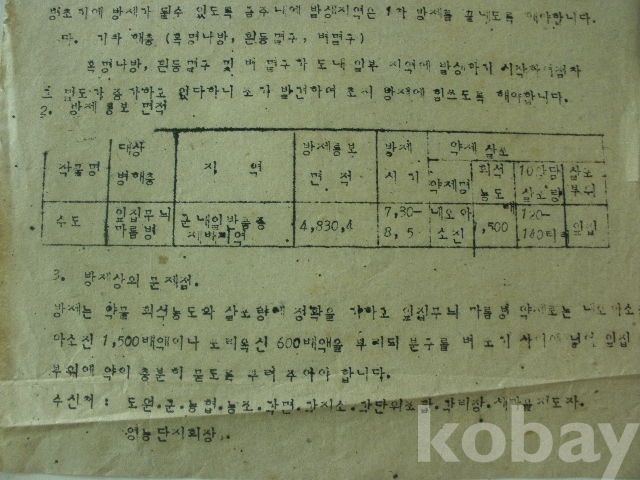 병초기에 방제가 될수 있도록 금주내에 발생지역은 1차 방제를 끝내도록 해야합니다.
다. 기타 해충 (혹명나방, 흰등멸구, 벼멸구)
혹명나방, 흰등멸구 및 벼 멸구가 도내 일부 지역에 발생하기 시작하여 점차
로 밀도가 증가하고 있다하니 조기 발견하여 초시 방제에 힘쓰도록 해야합니다.
2. 방제통보 면적
작물명 대상 병해충 지 역 방제통보 면 적 방제 시기 약제 살포
약제명 희석 농도 10a당 살포량 살포 부위
수도 잎집무늬 마름병 군 내일반품종 재배지역 4,830,4 7,30- 8,5 네오아 소진 ,500배 120- 140 잎집
3. 방제상의 문제점.
방제는 약물 희석농도와 살포량에 정확을 기하고 잎집무늬 마름병 약제로는 네오아소
아소진 1,500배액이나 포리옥신 600배액을 뿌리되 분구를 벼 포기 사이에 넣어 잎집
부위에 약이 충분히 묻도록 뿌려 주어야 합니다.
수신처 : 도원.군.농협.농조.각면.각지소.각단위조합.각리장.새마을지도자.
영농단지회장.
kobay